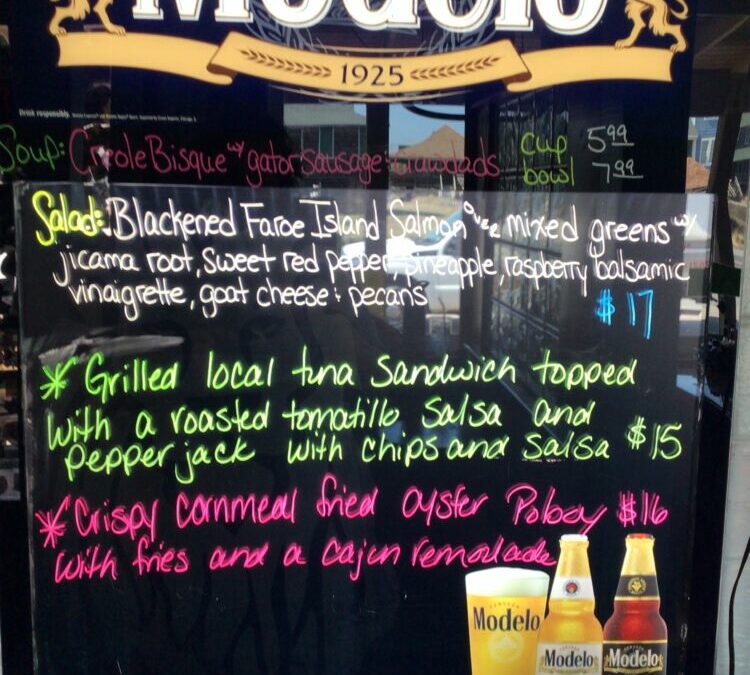 Modelo
1925
Drink responsibly.
Soup: Creole Bisque w/ gator sausage & crawdads cup 5.99
bowl 7.99
Salad: Blackened Faroe Island Salmon over mixed greens w/
jicama root, sweet red pepper, pineapple, raspberry balsamic
vinaigrette, goat cheese & pecans
$17
* Grilled local tuna sandwich topped
with a roasted tomatillo salsa and
pepper jack with chips and salsa $15
* Crispy cornmeal fried oyster Poboy $16
with fries and a cajun remolade
Modelo
Modelo
Modelo